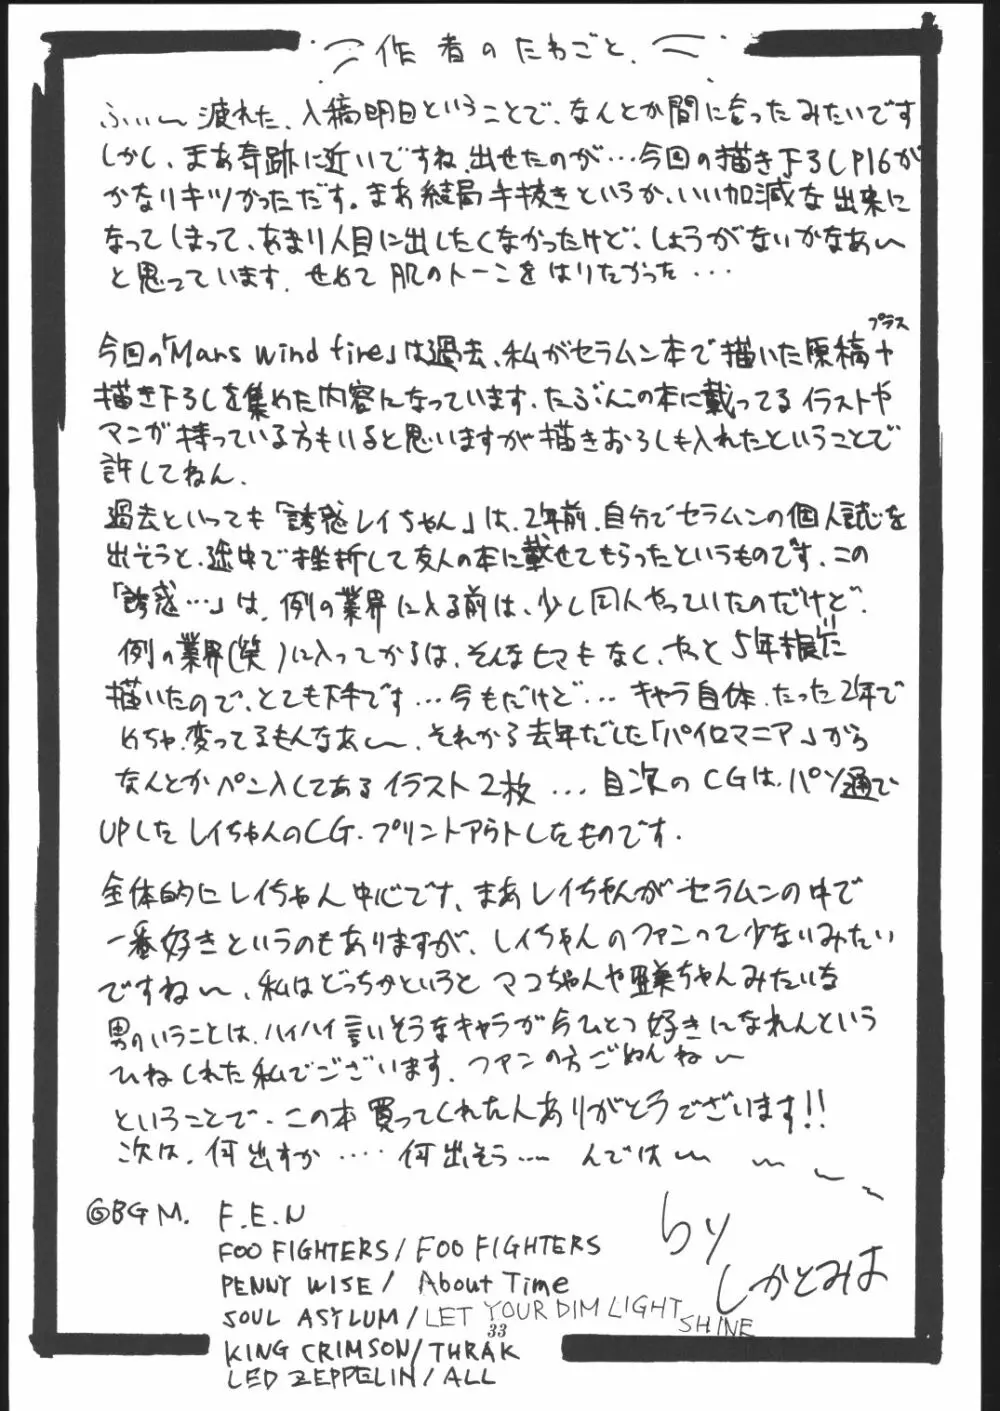 作者のたわごと.
ふぃ〜疲れた、入稿明日ということで、なんとか間に合ったみたいです
しかし、まあ奇跡に近いですね、出せたのが…今回の描き下ろしP16が
かなりキツかっただす。まあ結局手抜きというか、いい加減な出来に
なってしまって、あまり人目に出したくなかったけど、しょうがないかなあ〜
と思っています. せめて肌のトーンをはりたかった・・・
プラス
今回の「Mars wind fire」は過去、私がセラムン本で描いた原稿+
描き下ろしを集めた内容になっています. たぶんこの本に載ってるイラストや
マンガ持っている方もいると思いますが描きおろしも入れたということで
許してねん.
過去といっても「誘惑レイちゃん」は、2年前、自分でセラムンの個人誌を
出そうと、途中で挫折して友人の本に載せてもらったというものです. この
「誘惑…」は、例の業界に入る前は、少し同人やっていたのだけど、
例の業界(笑)に入ってからは、そんなヒマもなく、やっと5年振りに
描いたので、とても下手です…今もだけど… キャラ自体、たった2年で
めちゃ変ってるもんなあ〜、それから去年だした「パイロマニア」から
なんとかペン入してあるイラスト2枚 … 目次のCGは、パソ通で
UPしたレイちゃんのCG、プリントアウトしたものです.
全体的にレイちゃん中心です、まあレイちゃんがセラムンの中で
一番好きというのもありますが、レイちゃんのファンって少ないみたい
ですね〜、私はどっちかというとマコちゃんや亜美ちゃんみたいな
男のいうことは、ハイハイ言いそうなキャラが今ひとつ好きになれんという
ひねくれた私でございます. ファンの方ごめんね〜
ということで、この本買ってくれた人ありがとうでございます!!
次は、何出すか ・・・・ 何出そう ・・・・ んでは〜 〜 〜 〜 〜
◎BGM. F.E.N
FOO FIGHTERS/FOO FIGHTERS
PENNY WISE/ About Time
SOUL ASYLUM/LET YOUR DIM LIGHT SHINE
KING CRIMSON/THRAK
LED ZEPPELIN/ALL
by
しかとみは
33